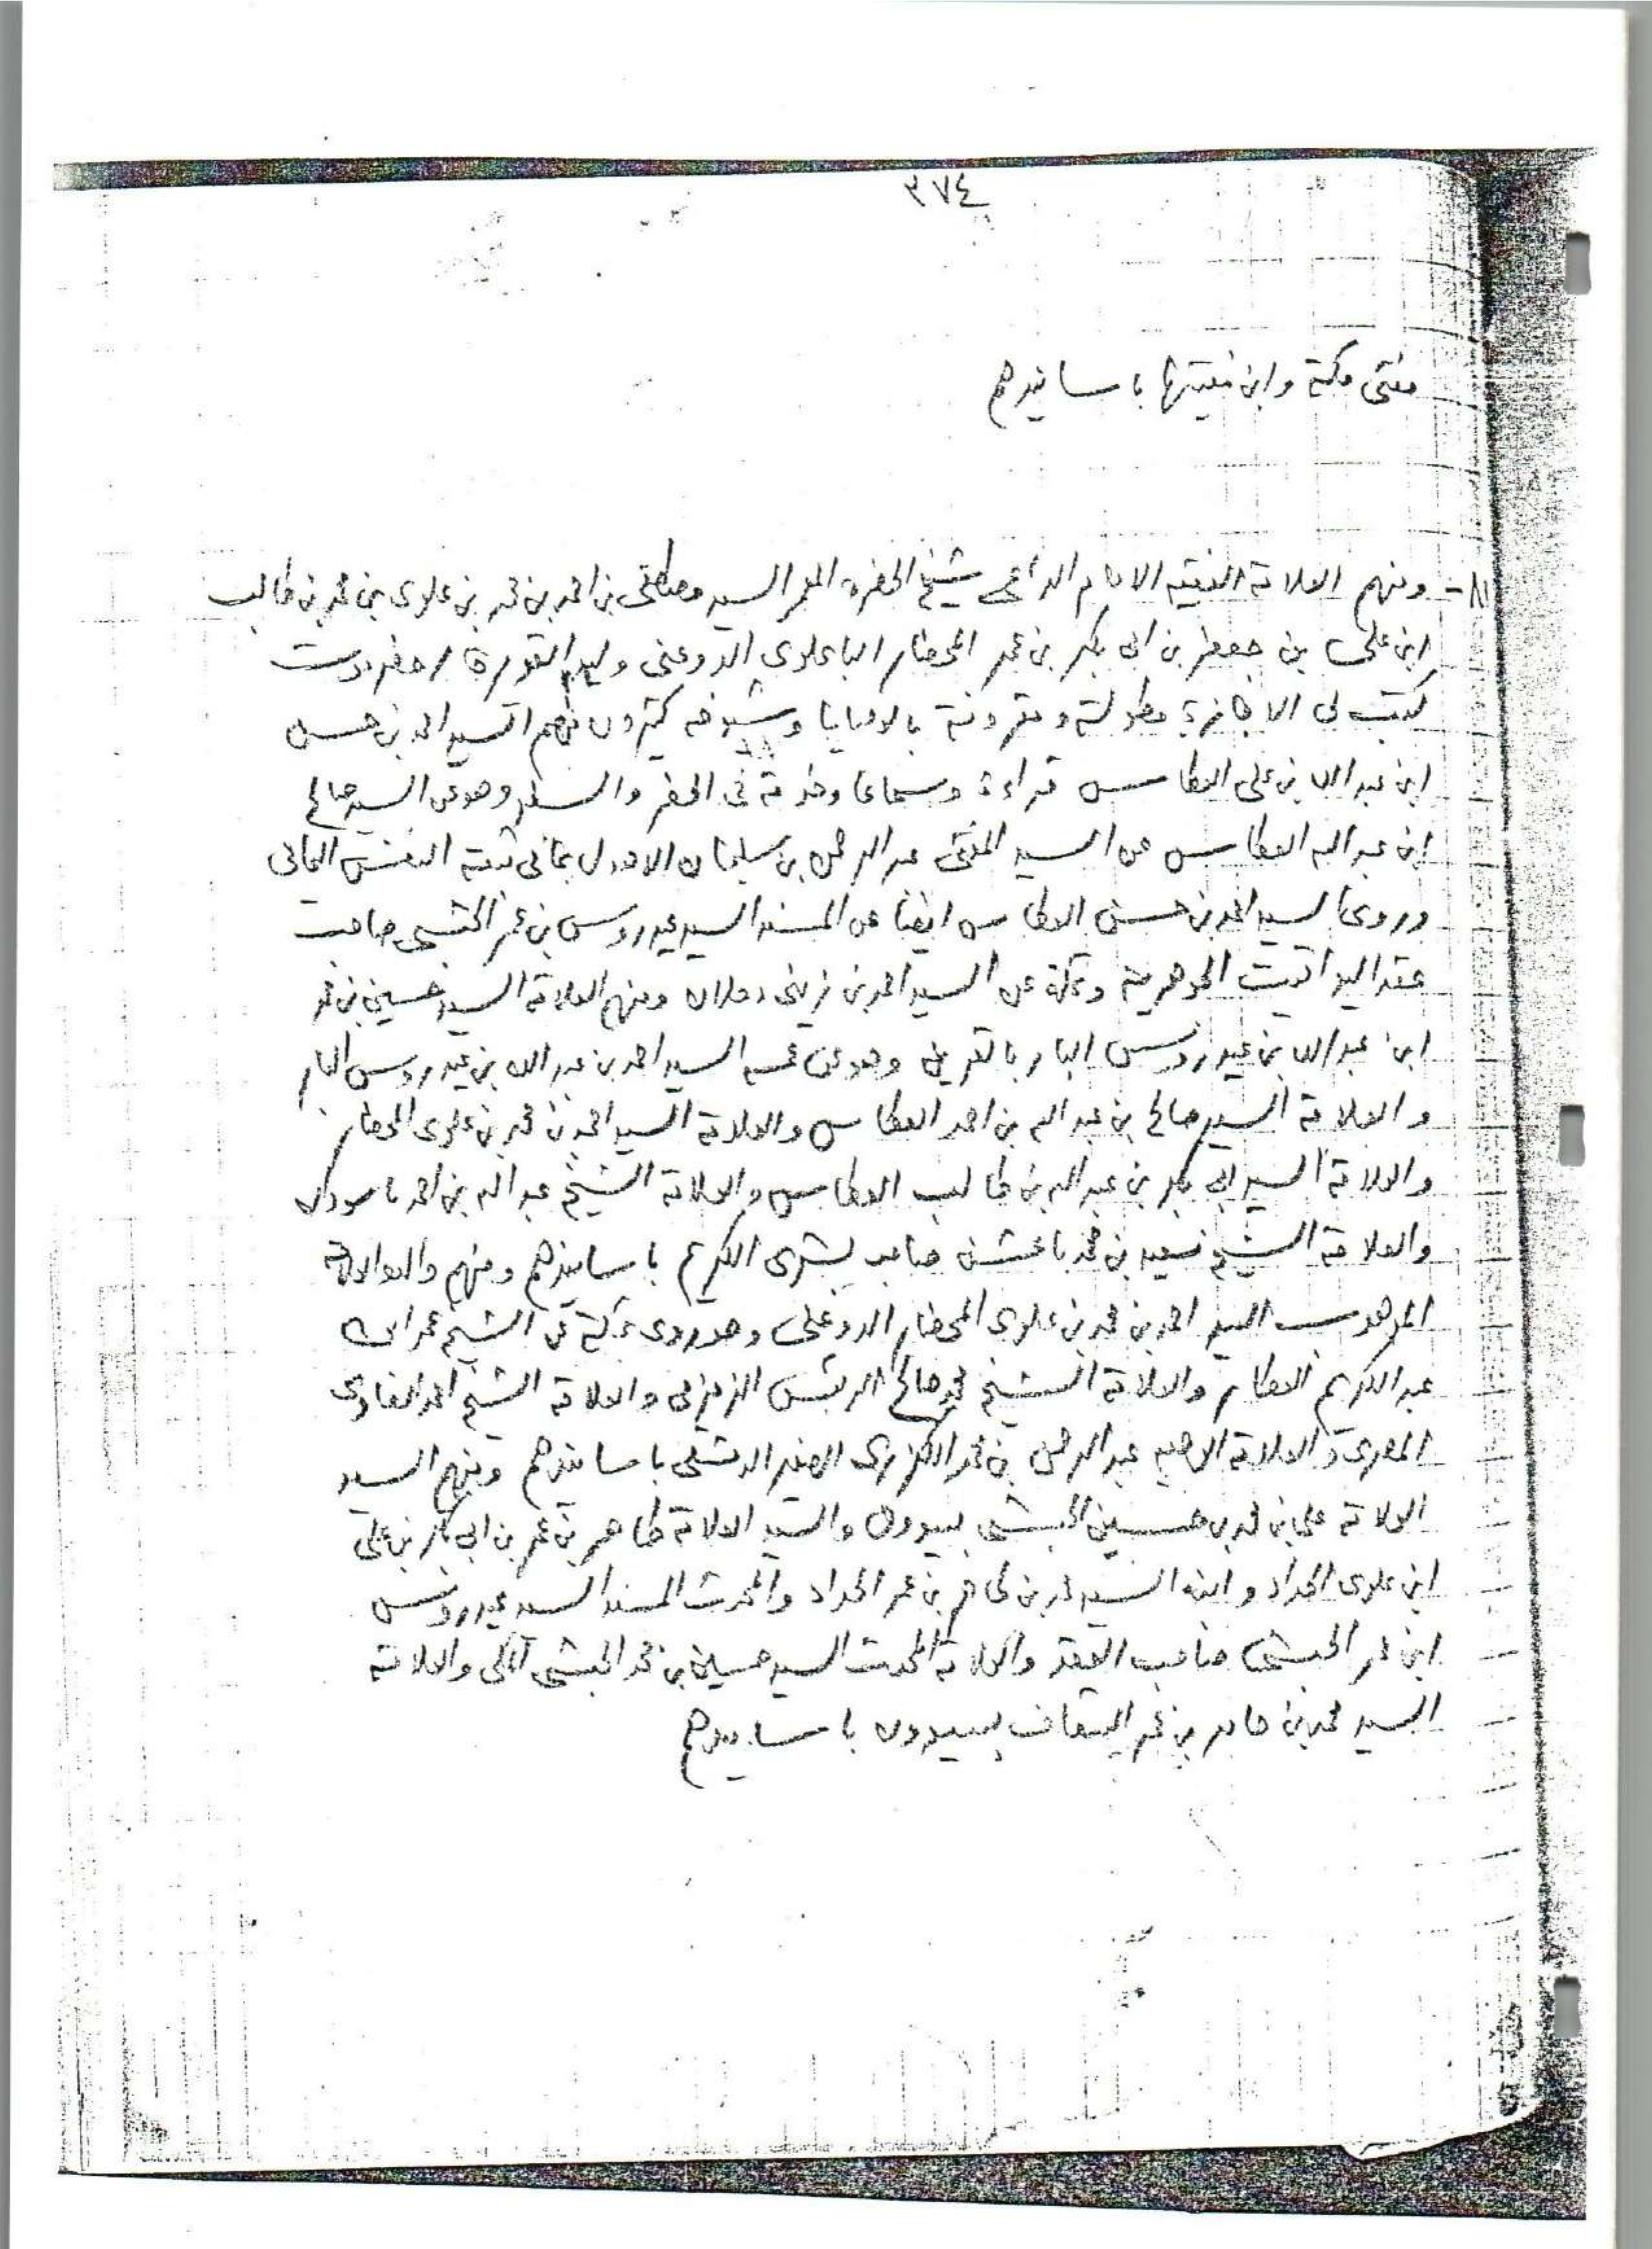 ٣٧٤
مفتى مكة وابن مفتيها باسانيدهم
٨١- ومنهم العلامة الفقيه الامام الداعى شيخ الحضرة المعمر السيد مصطفى بن احمد بن محمد بن علوى بن محمد بن طالب
ابن على بن جعفر بن ابى بكر بن عمر المحضار الباعلوى الدوعنى وليد القويرة حضرموت
كتب لى الاجازة مطولة ومقرونة بالوصايا وشيوخه كثيرون فمنهم السيد احمد بن حسن
ابن عبدالله بن على العطاس قراءة وسماعا وخدمة فى الحضر والسفر وهو عن السيد صالح
ابن عبدالله العطاس عن السيد المفتى عبدالرحمن بن سليمان الاهدل بما فى ثبته النفس اليمانى
وروى السيد احمد بن حسن العطاس ايضا عن المسند السيد عيدروس بن عمر الحبشى صاحب
عقد اليواقيت الجوهرية وبمكة عن السيد احمد بن زينى دحلان ومنهم العلامة السيد حسين بن محمد
ابن عبدالله بن عيدروس البار بالقرين وهو عن عمه السيد احمد بن عبدالله بن عيدروس البار
والعلامة السيد صالح بن عبدالله بن احمد العطاس والعلامة السيد احمد بن محمد بن علوى المحضار
والعلامة السيد ابى بكر بن عبدالله بن طالب العطاس والعلامة الشيخ عبدالله بن احمد باسودان
والعلامة الشيخ سعيد بن محمد باعشن صاحب بشرى الكريم باسانيدهم ومنهم والده العلامة
الموهوب السيد احمد بن محمد بن علوى المحضار الدوعنى وهو روى بمكة عن الشيخ عمر ابن
عبدالكريم العطار والعلامة الشيخ محمد صالح الريس الزمزمى والعلامة الشيخ احمد الصاوى
المصرى والعلامة الوجيه عبدالرحمن بن محمد الكزبرى الصغير الدمشقى باسانيدهم ومنهم السيد
العلامة على بن محمد بن حسين الحبشى بسيوون والسيد العلامة طاهر بن عمر بن ابى بكر بن على
ابن علوى الحداد وابنه السيد محمد بن طاهر بن عمر الحداد والمحدث المسند السيد عيدروس
ابن عمر الحبشى صاحب العقد والعلامة المحدث السيد حسين بن محمد الحبشى المكى والعلامة
السيد محمد بن حامد بن عمر السقاف بسيوون باسانيدهم